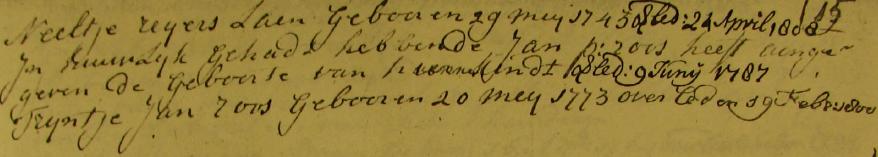 Neeltje reyers Laen Geboren 29 mey 1743 obled: 24 April, 1808 15
In huwlyk Gehadt hebbende Jan p: zoos heeft aenge-
geven de Geboorte van hunne kindt obled: 9 Junij 1787
Tryntje Jan zoos Gebooren 20 mey 1773 over leden 19 Feb: 1800